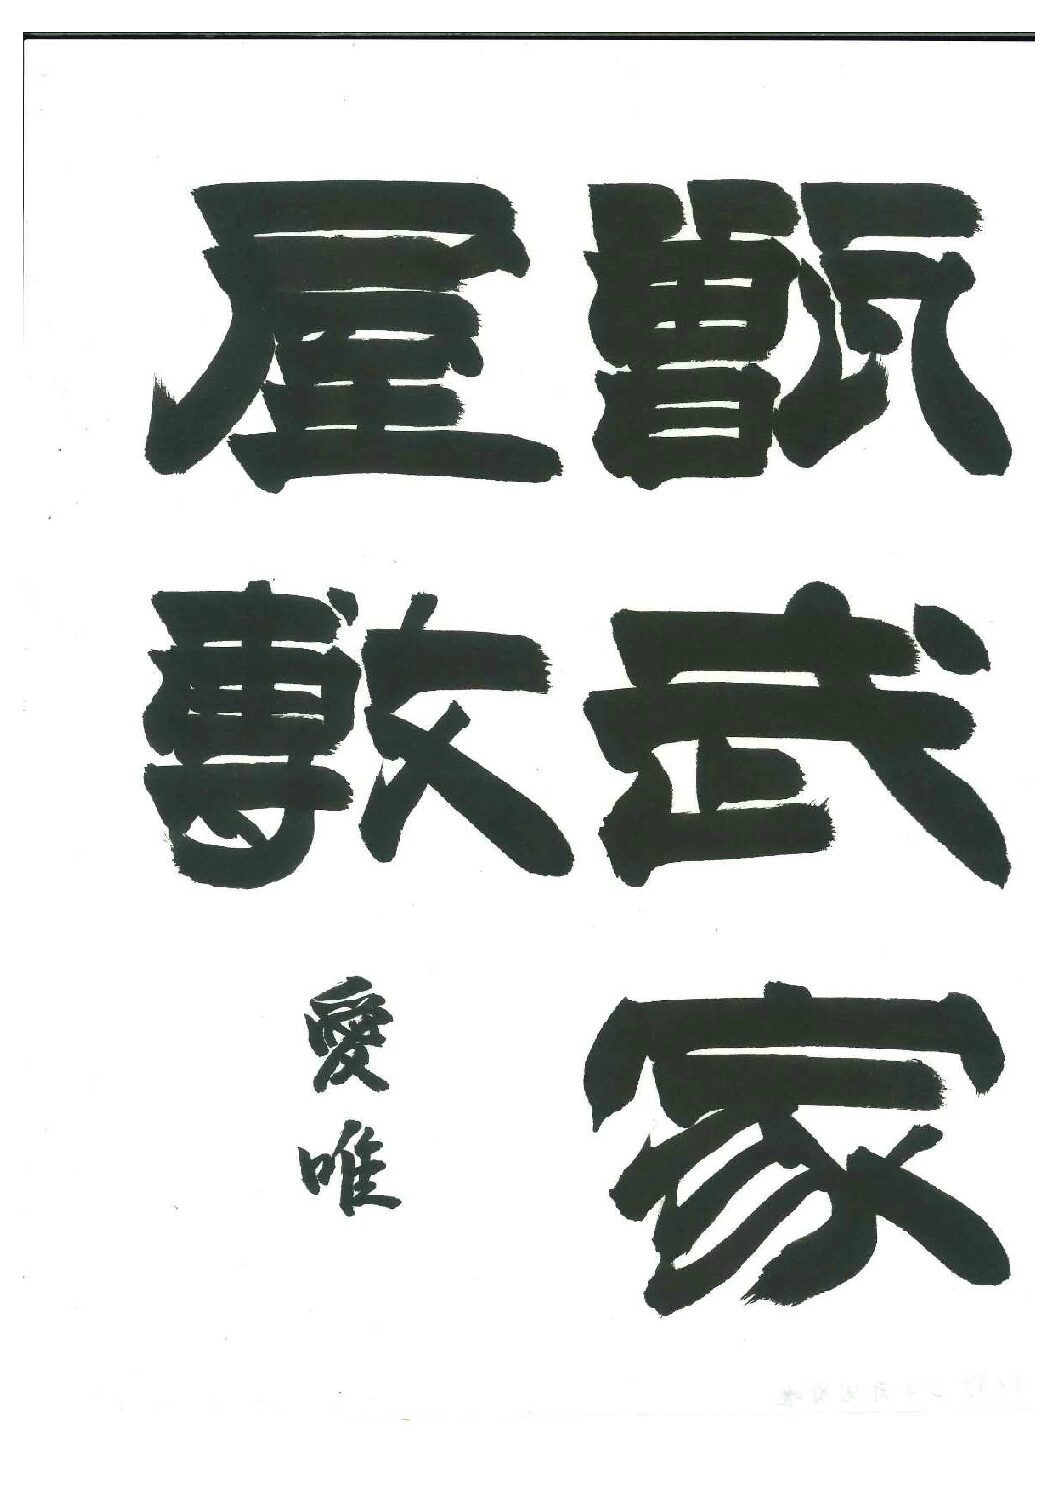 甑武家
屋敷
愛唯